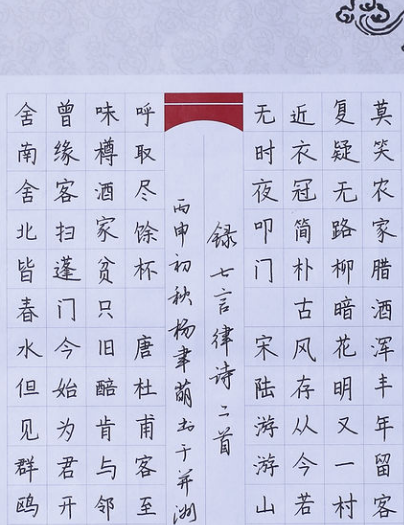 莫笑农家腊酒浑丰年留客
复疑无路柳暗花明又一村
近衣冠简朴古风存从今若
无时夜叩门 宋陆游游山
录七言律诗二首
丙申初秋杨聿萌书于并
呼取尽馀杯 唐杜甫客至
味樽酒家贫只旧醅肯与邻
曾缘客扫蓬门今始为君开
舍南舍北皆春水但见群鸥